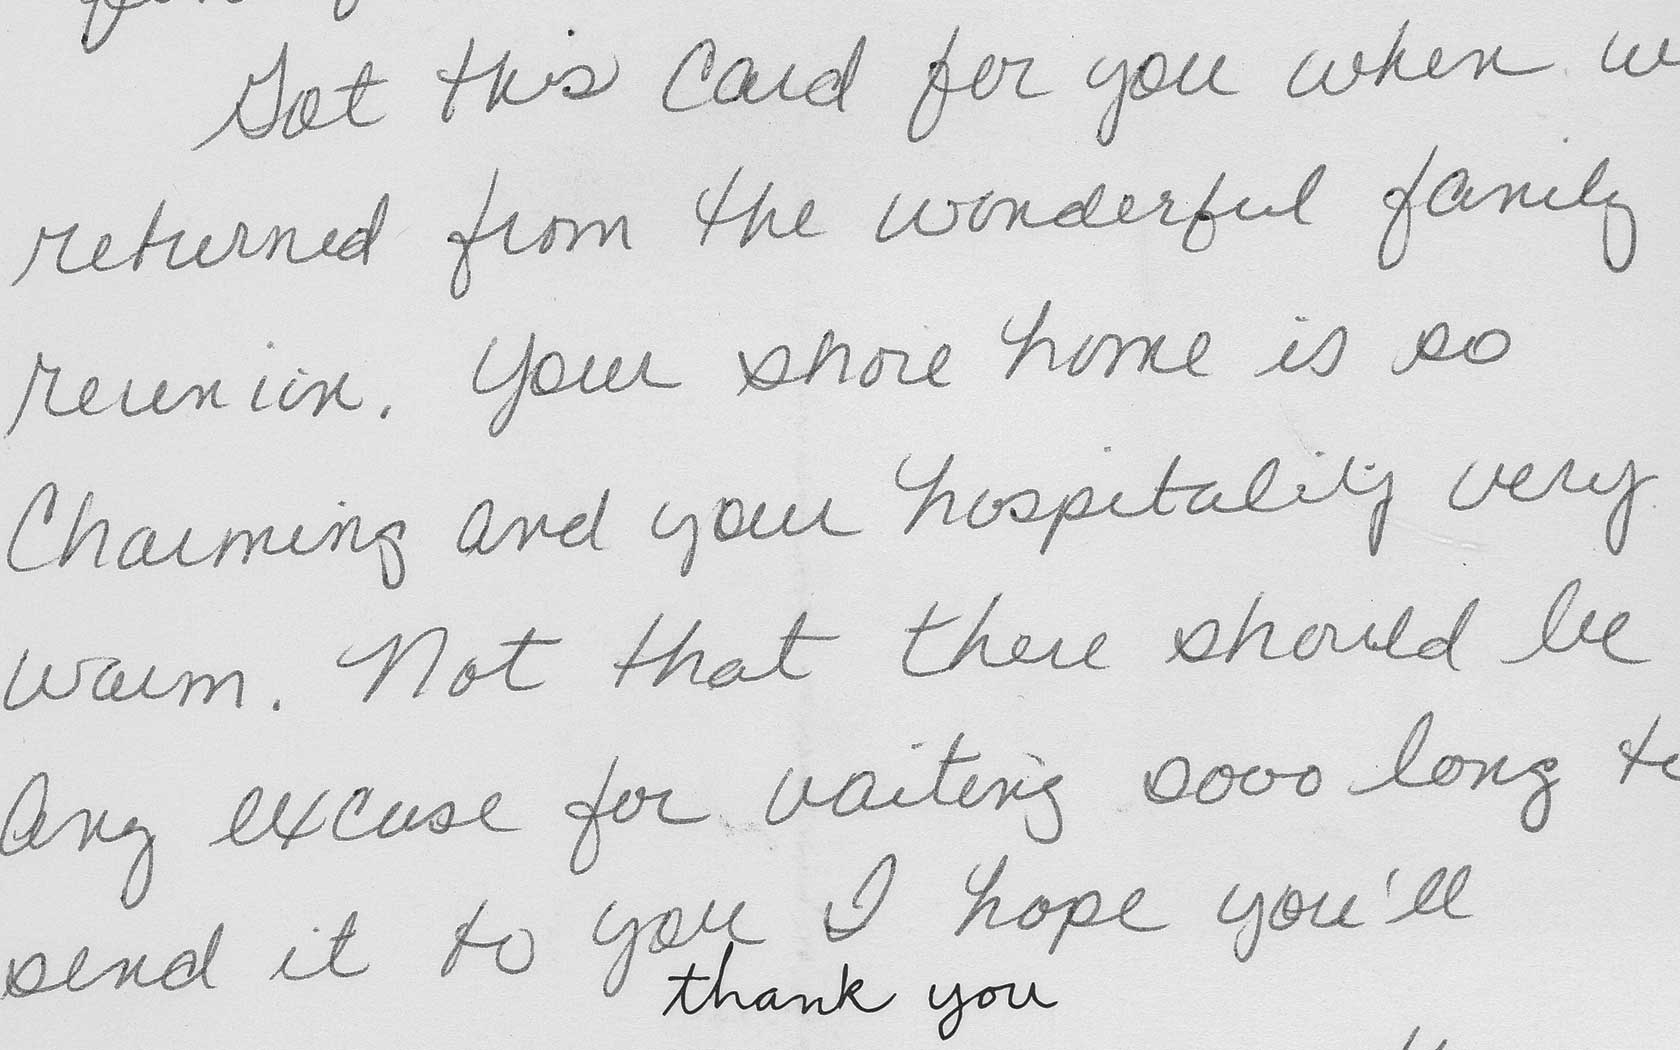 Got this Card for you when w
returned from the wonderful family
reunion. Your shore home is so
Charming and your hospitality very
warm. Not that there should be
Any excuse for waiting sooo long to
send it to you I hope you'll
thank you